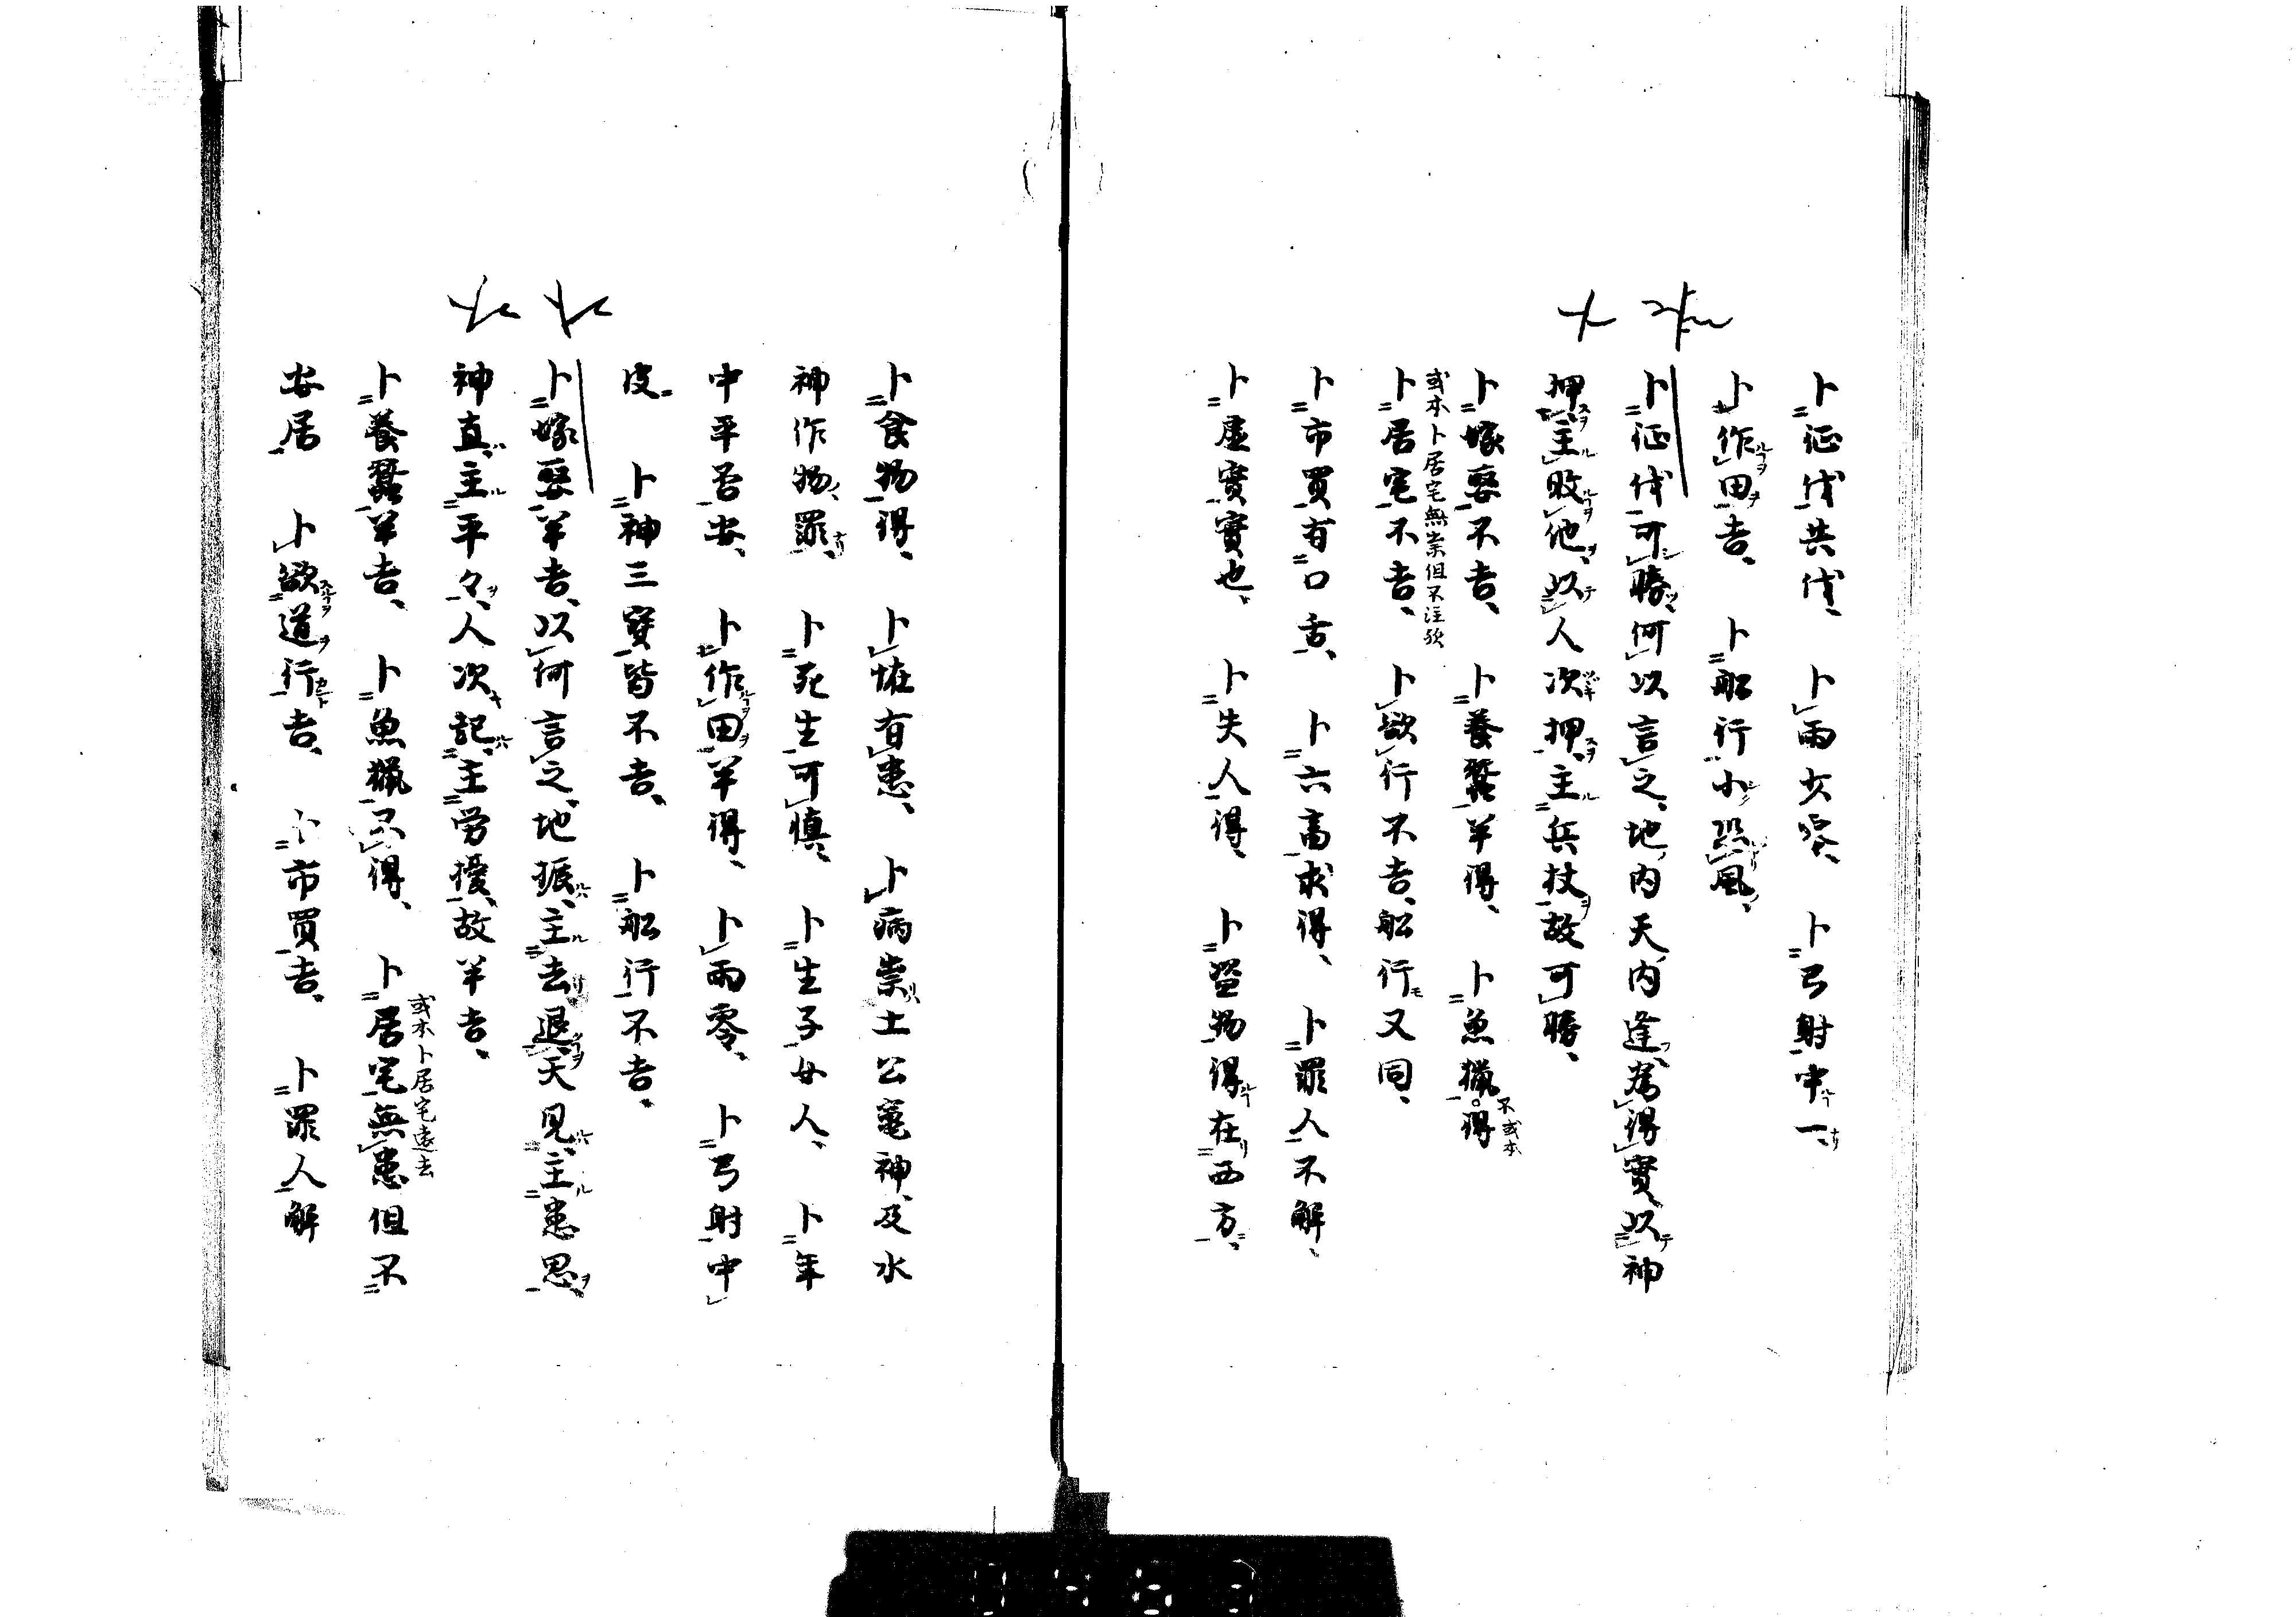 卜征伐共伐、卜雨少零、卜弓射中一、
卜作田吉、卜船行小恐風、
卜征伐可勝、何以言之、地内天内逢、為得實、以神
押主敗他、以人次押主兵杖故可勝、
卜嫁娶不吉、卜養蚕羊得、卜魚猟得
不或本
或本卜居宅無祟但不注歟
卜居宅不吉、卜欲行不吉、船行又同、
卜市買有口舌、卜六畜求得、卜罪人不解、
卜虚實實也、卜失人得、卜盗物得在西方、
卜食物得、卜恠有患、卜病祟土公竈神及水
神作物罪、卜死生可慎、卜生子女人、卜年
中平否安、卜作田羊得、卜雨零、卜弓射中
皮 卜神三寶皆不吉、卜船行不吉、
卜嫁娶羊吉、以何言之、地振主去退、天見主患思、
神直主平々、人次記主労擾、故羊吉、
或本卜居宅遠去
卜養蚕羊吉、卜魚猟不得、卜居宅無患但不
安居 卜欲道行吉、卜市買吉、卜罪人解